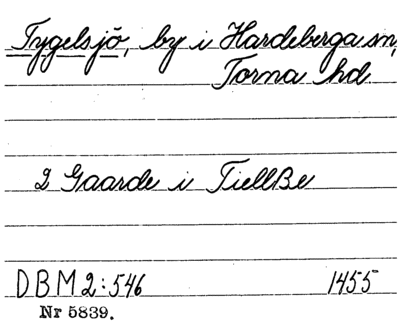 Tygelsjö, by i Hardeberga sn,
Torna hd
2 Gaarde i Tiellße
DBM 2:546 1455
Nr 5839.